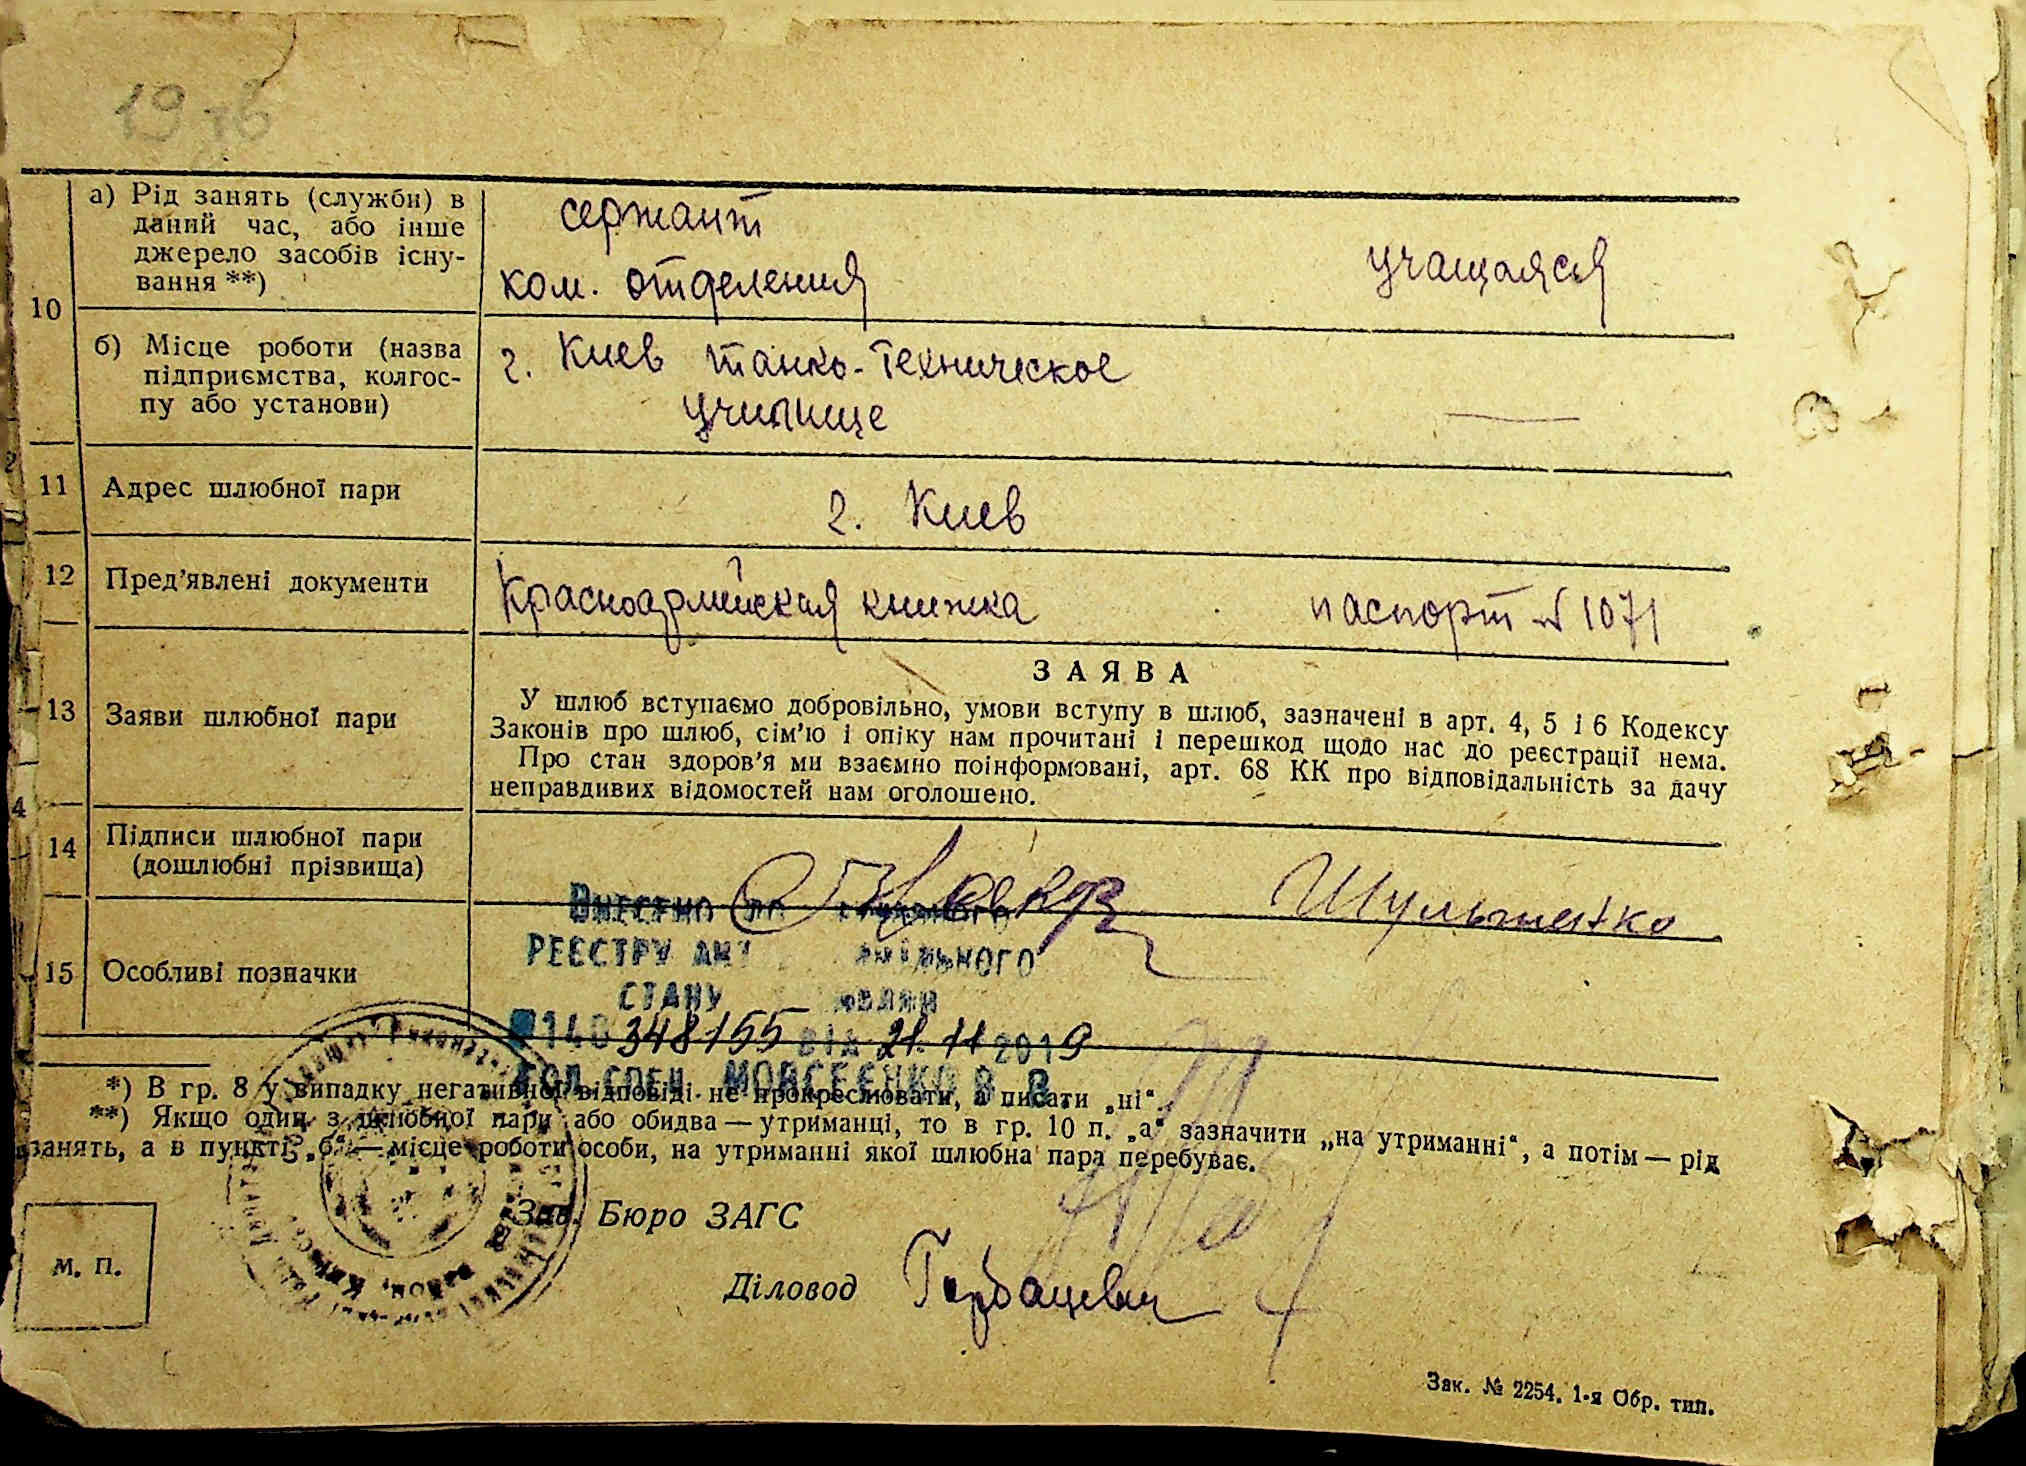 10
а) Рід занять (служби) в
даний час, або інше
джерело засобів існу-
вання **)
сержант
ком. отделения
учащаяся
б) Місце роботи (назва
підприємства, колгос-
пу або установи)
г. Киев танко-техническое
училище
11 Адрес шлюбної пари
г. Киев
12 Пред'явлені документи
Красноармейская книжка паспорт № 1071
13 Заяви шлюбної пари
ЗАЯВА
У шлюб вступаємо добровільно, умови вступу в шлюб, зазначені в арт. 4, 5 і 6 Кодексу
Законів про шлюб, сім'ю і опіку нам прочитані і перешкод щодо нас до реєстрації нема.
Про стан здоров'я ми взаємно поінформовані, арт. 68 КК про відповідальність за дачу
неправдивих відомостей нам оголошено.
14 Підписи шлюбної пари
(дошлюбні прізвища)
Шульженко
15 Особливі позначки
РЕЄСТРУ
СТАНУ
348155 ВІД 21.11 2019
МОЙСЕЄНКО В. В.
*) В гр. 8 у випадку негативної відповіді не прокреслювати, а писати „ні“.
**) Якщо один з шлюбної пари або обидва — утриманці, то в гр. 10 п. „а“ зазначити „на утриманні“, а потім — рід
занять, а в пункті „б“ — місце роботи особи, на утриманні якої шлюбна пара перебуває.
Зав. Бюро ЗАГС
М. П.
Діловод Горбацевич
Зак. № 2254. 1-я Обр. тип.